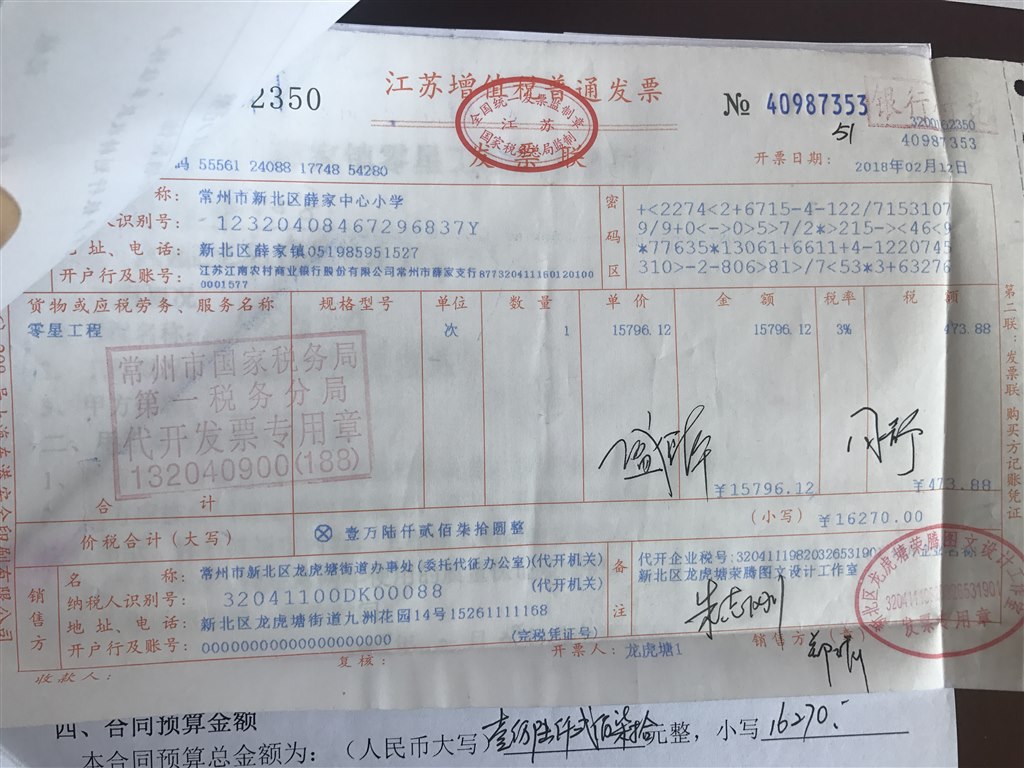 2350
江苏增值税普通发票
全国统一发票监制章
江 苏
国家税务总局监制
发 票 联
№ 40987353
银行
3200162350
40987353
51
开票日期: 2018年02月12日
码 55561 24088 17748 54280
称: 常州市新北区薛家中心小学
人识别号: 12320408467296837Y
址、电话: 新北区薛家镇051985951527
开户行及账号: 江苏江南农村商业银行股份有限公司常州市薛家支行8773204111601201000001577
密码区
+<2274<2+6715-4-122/7153107
9/9+0<->0>5>7/2*>215-><46<9
*77635*13061+6611+4-1220745
310>-2-806>81>/7<53*3+63276
货物或应税劳务、服务名称 规格型号 单位 数 量 单 价 金 额 税率 税 额
零星工程 次 1 15796.12 15796.12 3% 473.88
常州市国家税务局
第一税务分局
代开发票专用章
132040900(188)
合 计 ¥15796.12 ¥473.88
价税合计(大写) ⊗ 壹万陆仟贰佰柒拾圆整 (小写) ¥16270.00
销售方
名 称: 常州市新北区龙虎塘街道办事处(委托代征办公室)(代开机关)
纳税人识别号: 32041100DK00088 (代开机关)
地址、电话: 新北区龙虎塘街道九洲花园14号15261111168
开户行及账号: 0000000000000000000 (完税凭证号)
备注
代开企业税号:3204111982032653190
新北区龙虎塘荣腾图文设计工作室
发票专用章
收款人: 复核: 开票人: 龙虎塘1 销售方
第二联:发票联 购买方记账凭证
四、合同预算金额
本合同预算总金额为: (人民币大写 壹万陆仟贰佰柒拾元整, 小写 16270.